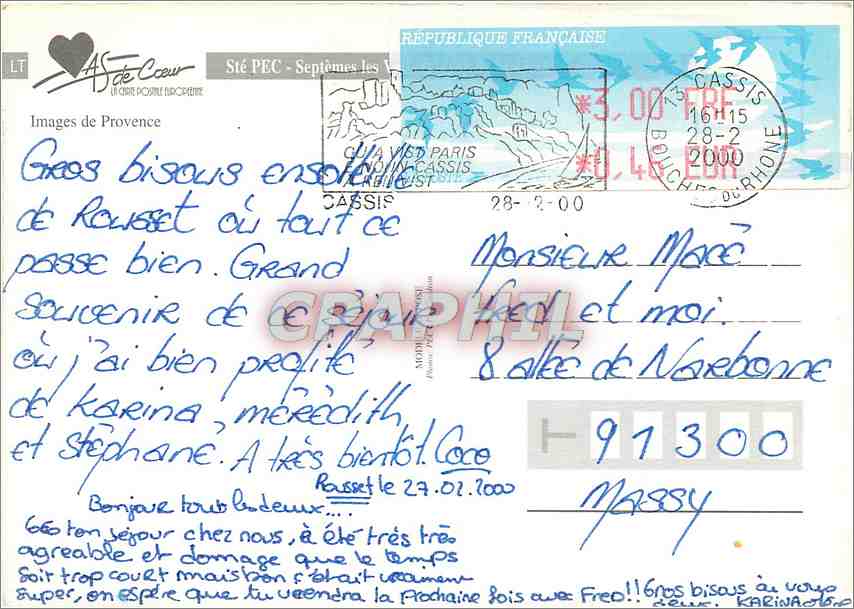 LT
AS de Cœur
LA CARTE POSTALE EUROPÉENNE
Sté PEC - Septèmes les V
Images de Provence
RÉPUBLIQUE FRANÇAISE
*3,00 FRF
*0,46 EUR
QUI A VIST PARIS
E NOUN CASSIS
A REN VIST
CASSIS
28-2-00
13 CASSIS
16H15
28-2
2000
BOUCHES DU RHONE
Gros bisous ensoleillés
de Rousset où tout ce
passe bien. Grand
souvenir de ce séjour
où j'ai bien profité
de Karina, mérèdith
et Stéphane. A très bientôt. Coco
Rousset le 27.02.2000
Bonjour tout les deux....
ton séjour chez nous, à été très très
agreable et domage que le temps
soit trop court mais bon c'était vraiment
super, on espère que tu veendra la Prochaine fois avec Fred!! Gros bisous à vous
deux. KARINA
MODÈLE DÉPOSÉ
Monsieur Macé
Fred et moi.
8 allée de Narbonne
91300
Massy
CRAPHIL